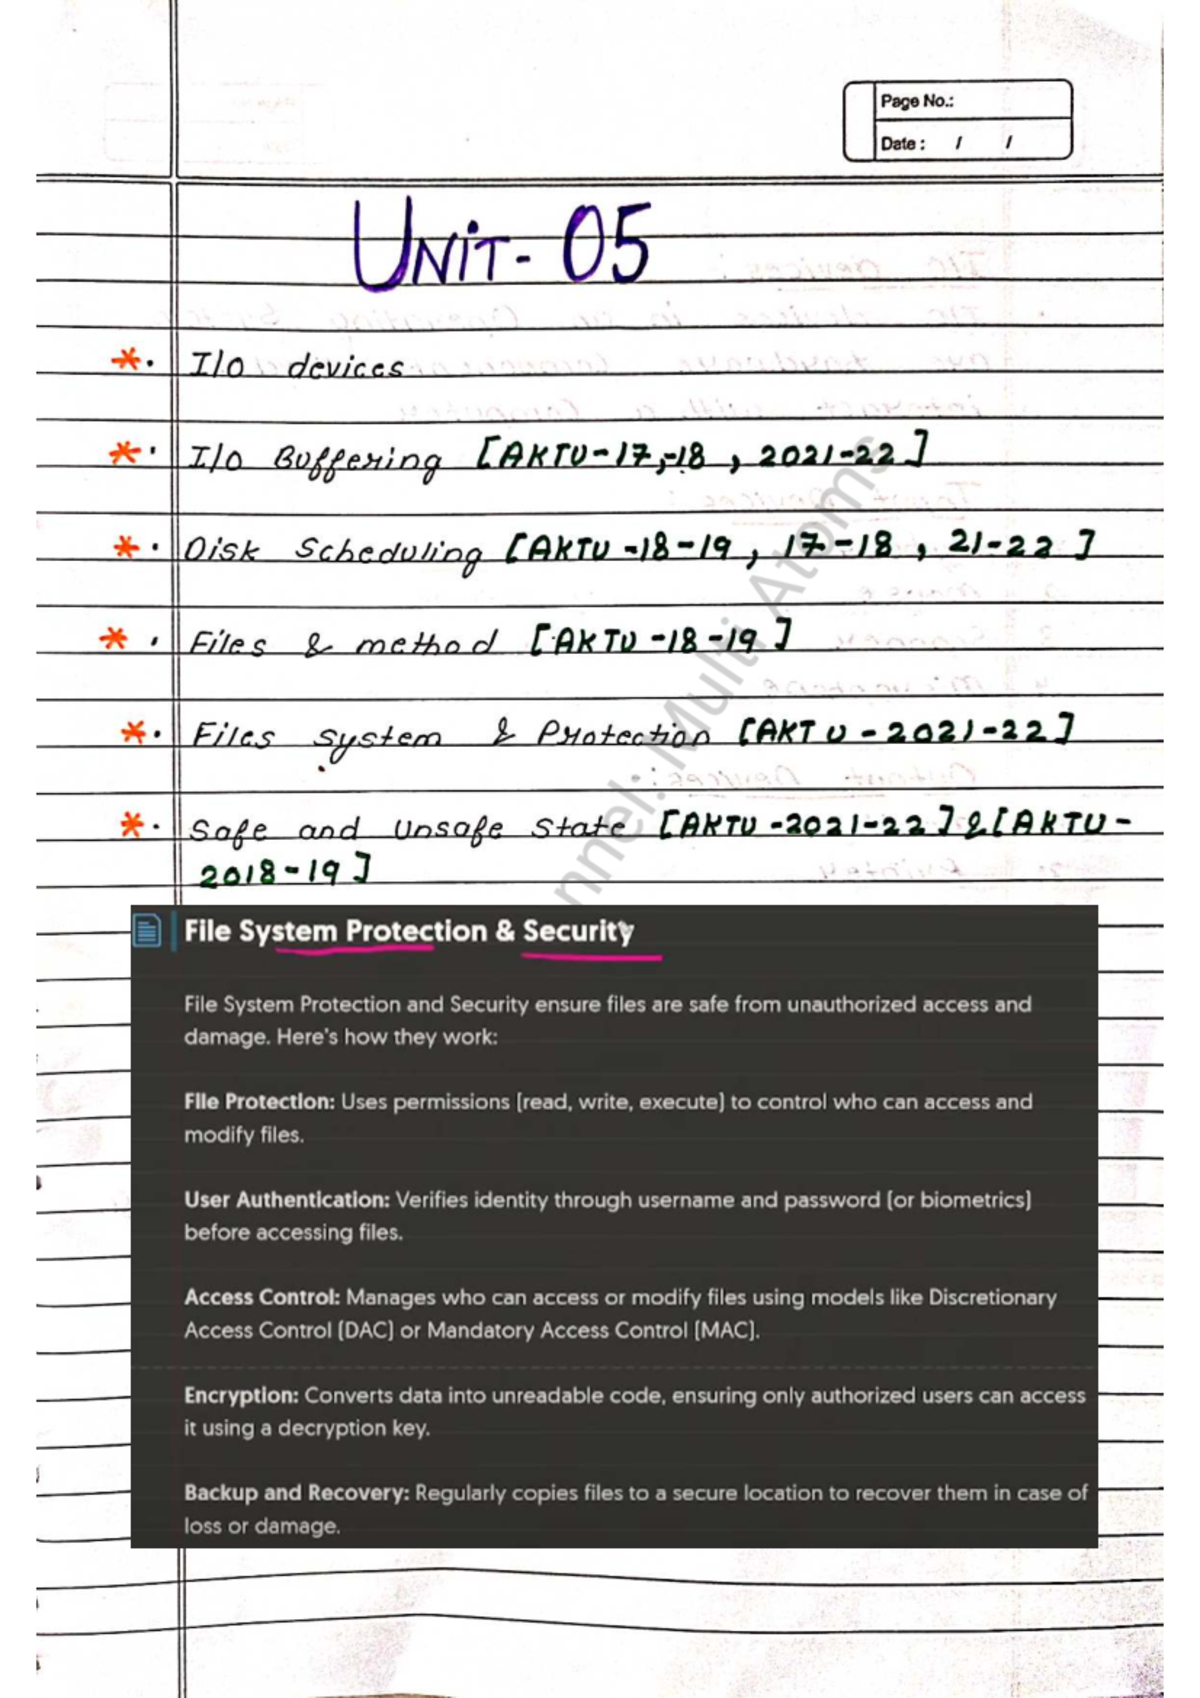 Page No.:
Date : / /
UNIT- 05
*. I/O devices
*. I/O Buffering [AKTU-17,-18 , 2021-22]
*. Disk Scheduling [AKTU -18-19 , 17-18 , 21-22 ]
*. Files & method [AKTU -18-19]
*. Files system & Protection [AKTU - 2021-22]
*. Safe and Unsafe State [AKTU -2021-22] & [AKTU -
2018-19]
nnel: Multi Atoms
File System Protection & Security
File System Protection and Security ensure files are safe from unauthorized access and
damage. Here's how they work:
File Protection: Uses permissions (read, write, execute) to control who can access and
modify files.
User Authentication: Verifies identity through username and password (or biometrics)
before accessing files.
Access Control: Manages who can access or modify files using models like Discretionary
Access Control (DAC) or Mandatory Access Control (MAC).
Encryption: Converts data into unreadable code, ensuring only authorized users can access
it using a decryption key.
Backup and Recovery: Regularly copies files to a secure location to recover them in case of
loss or damage.